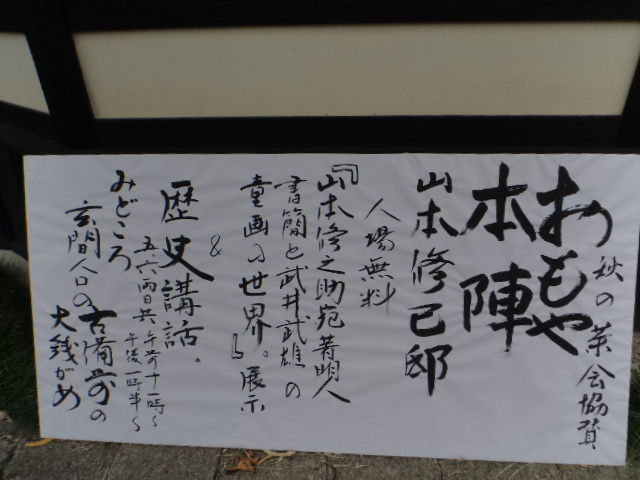 秋の茶会協賛
おもや
本陣
山本修己邸
入場無料
『山本修之助宛著明人
書簡と武井武雄の
童画の世界』展示
&
歴史講話。
五六両日共 午前十一時〜
午後一時半〜
みどころ
玄関入口の古備前の
大銭がめ